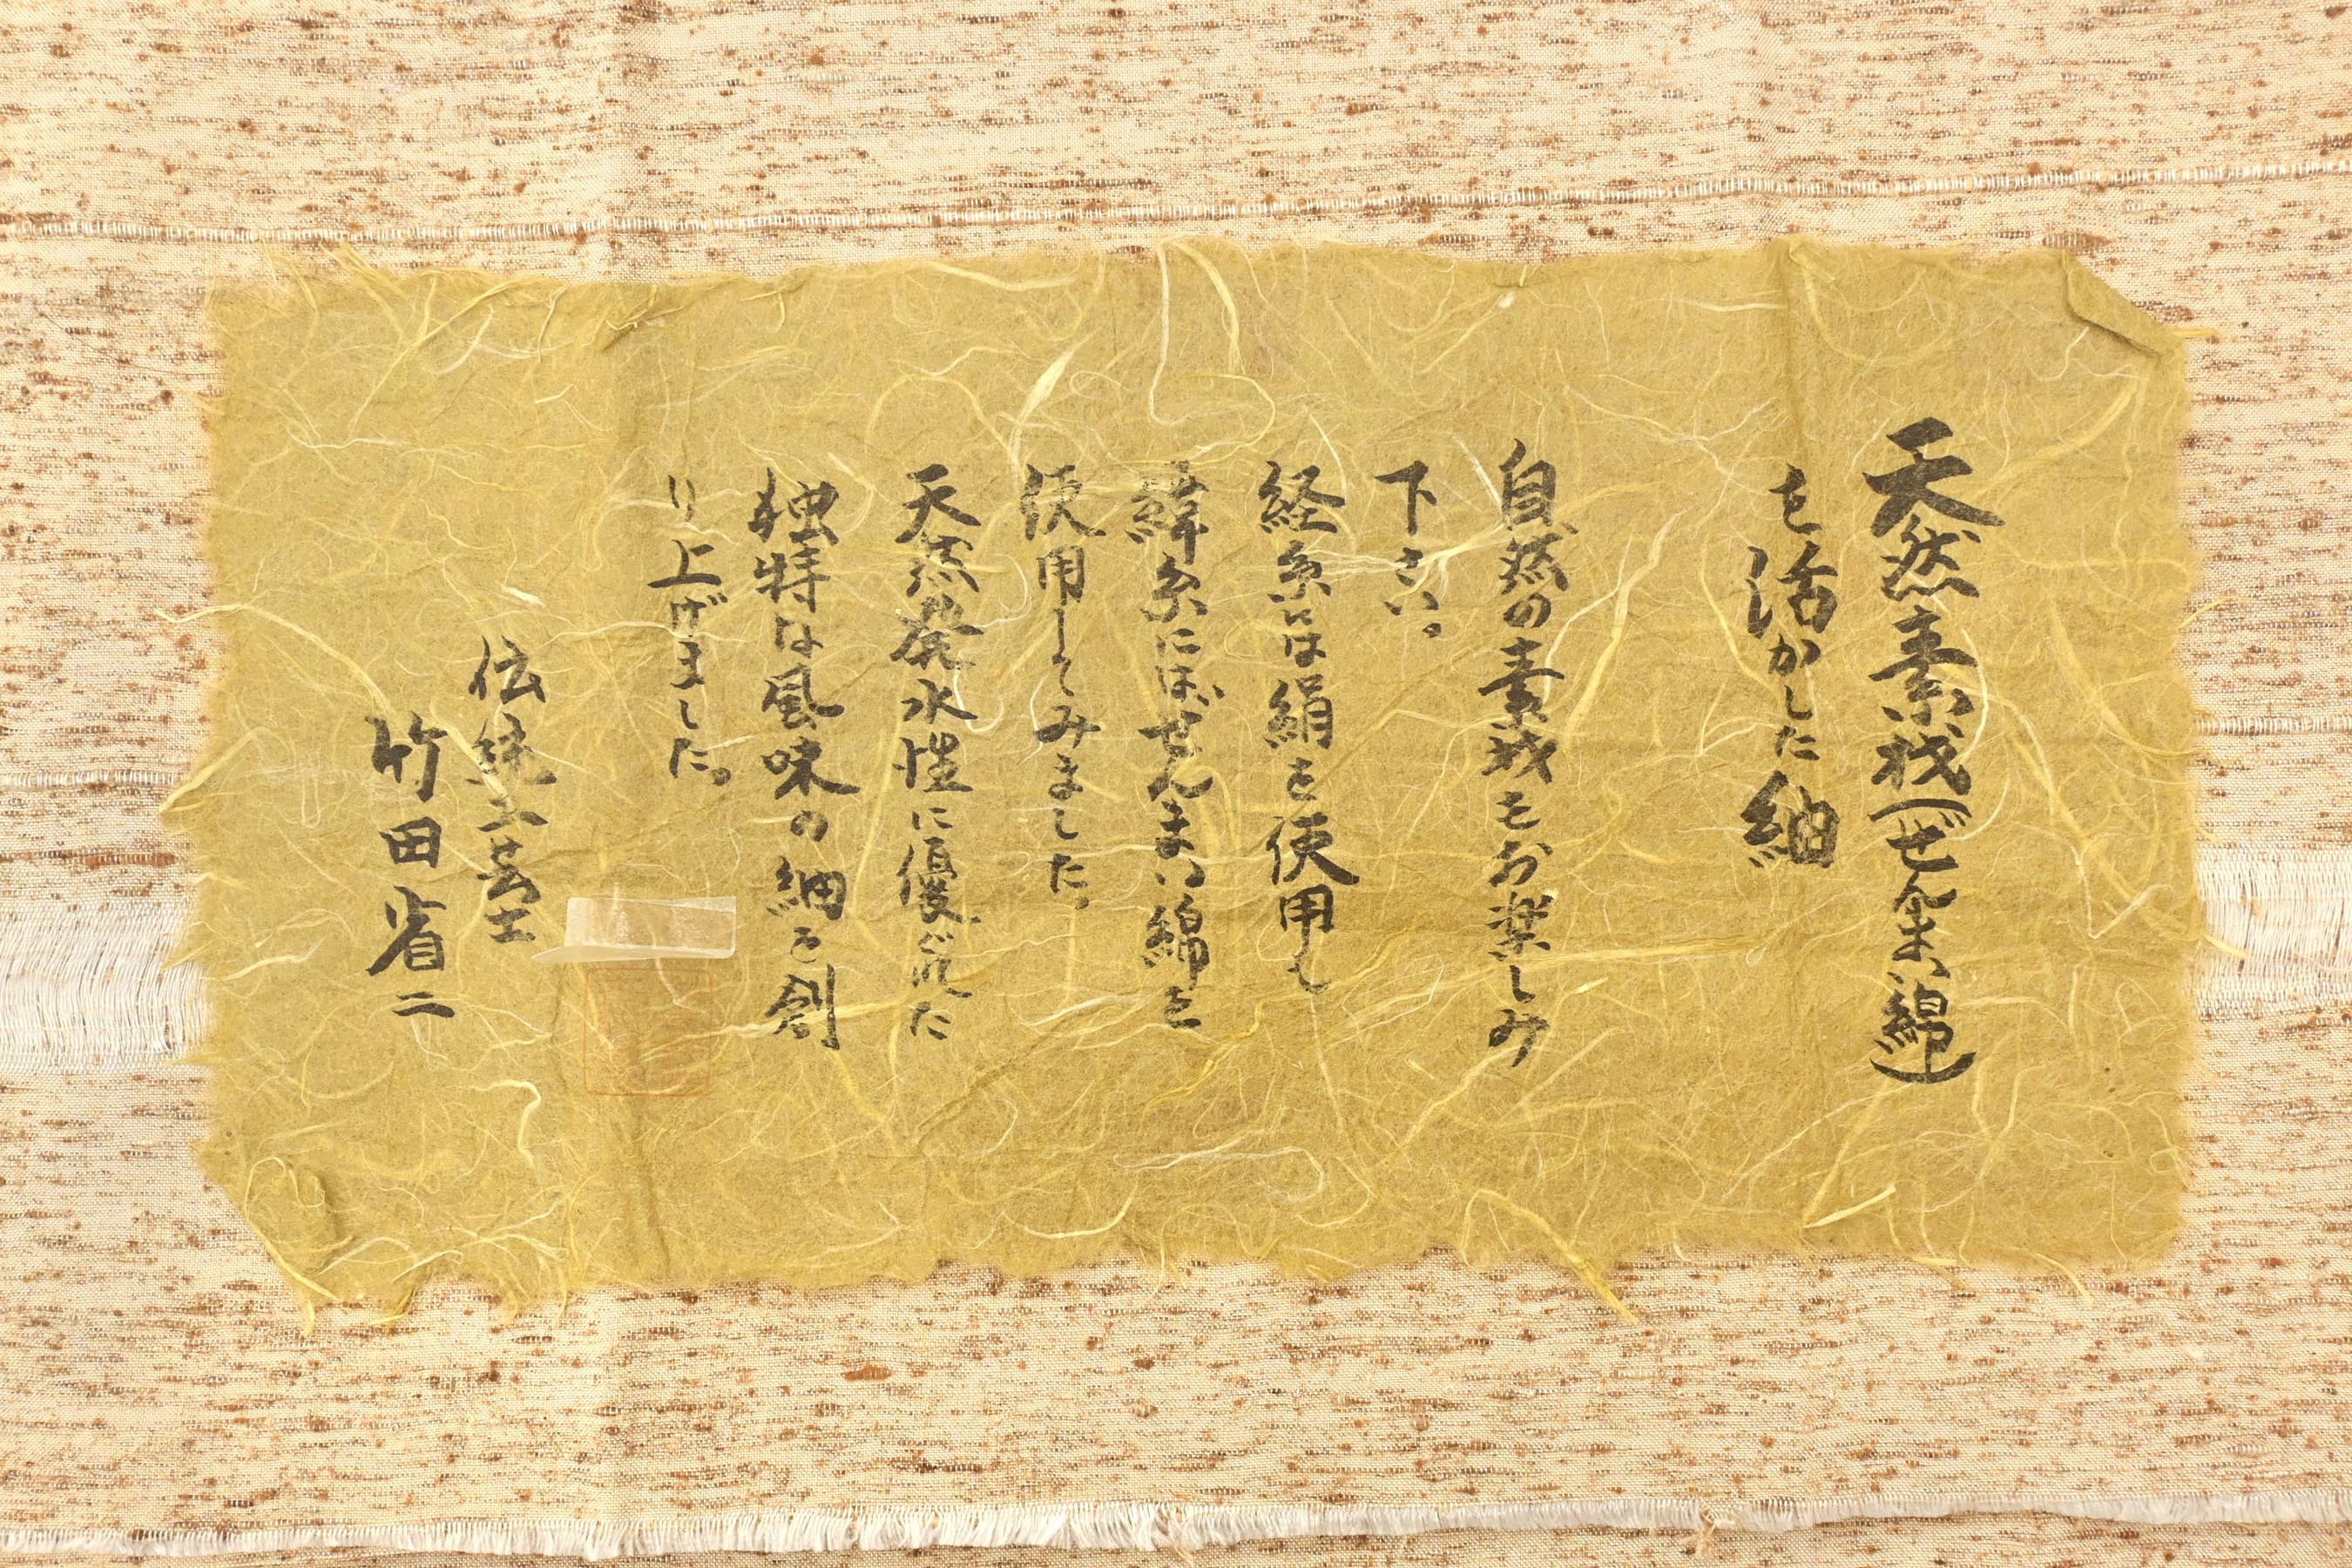 天然素材(ぜんまい綿)
を活かした紬
自然の素材をお楽しみ
下さい。
経糸は絹を使用し
緯糸にはぜんまい綿を
使用してみました。
天然発水性に優ぐれた
独特な風味の紬を創
り上げました。
伝統工芸士
竹田省二